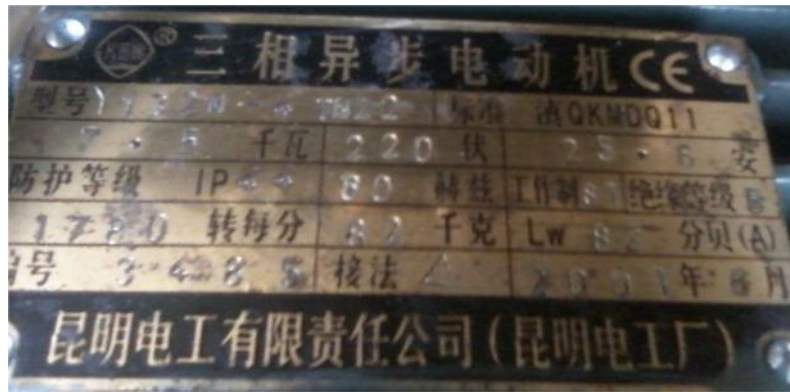 三相异步电动机 CE
型号 标准 滇QKMDQ11
7.5 千瓦 220 伏 25.6 安
防护等级 IP44 赫兹 工作制S1 绝缘等级B
转每分 82 千克 Lw 82 分贝(A)
编号 3485 接法 △ 2001年 月
昆明电工有限责任公司(昆明电工厂)